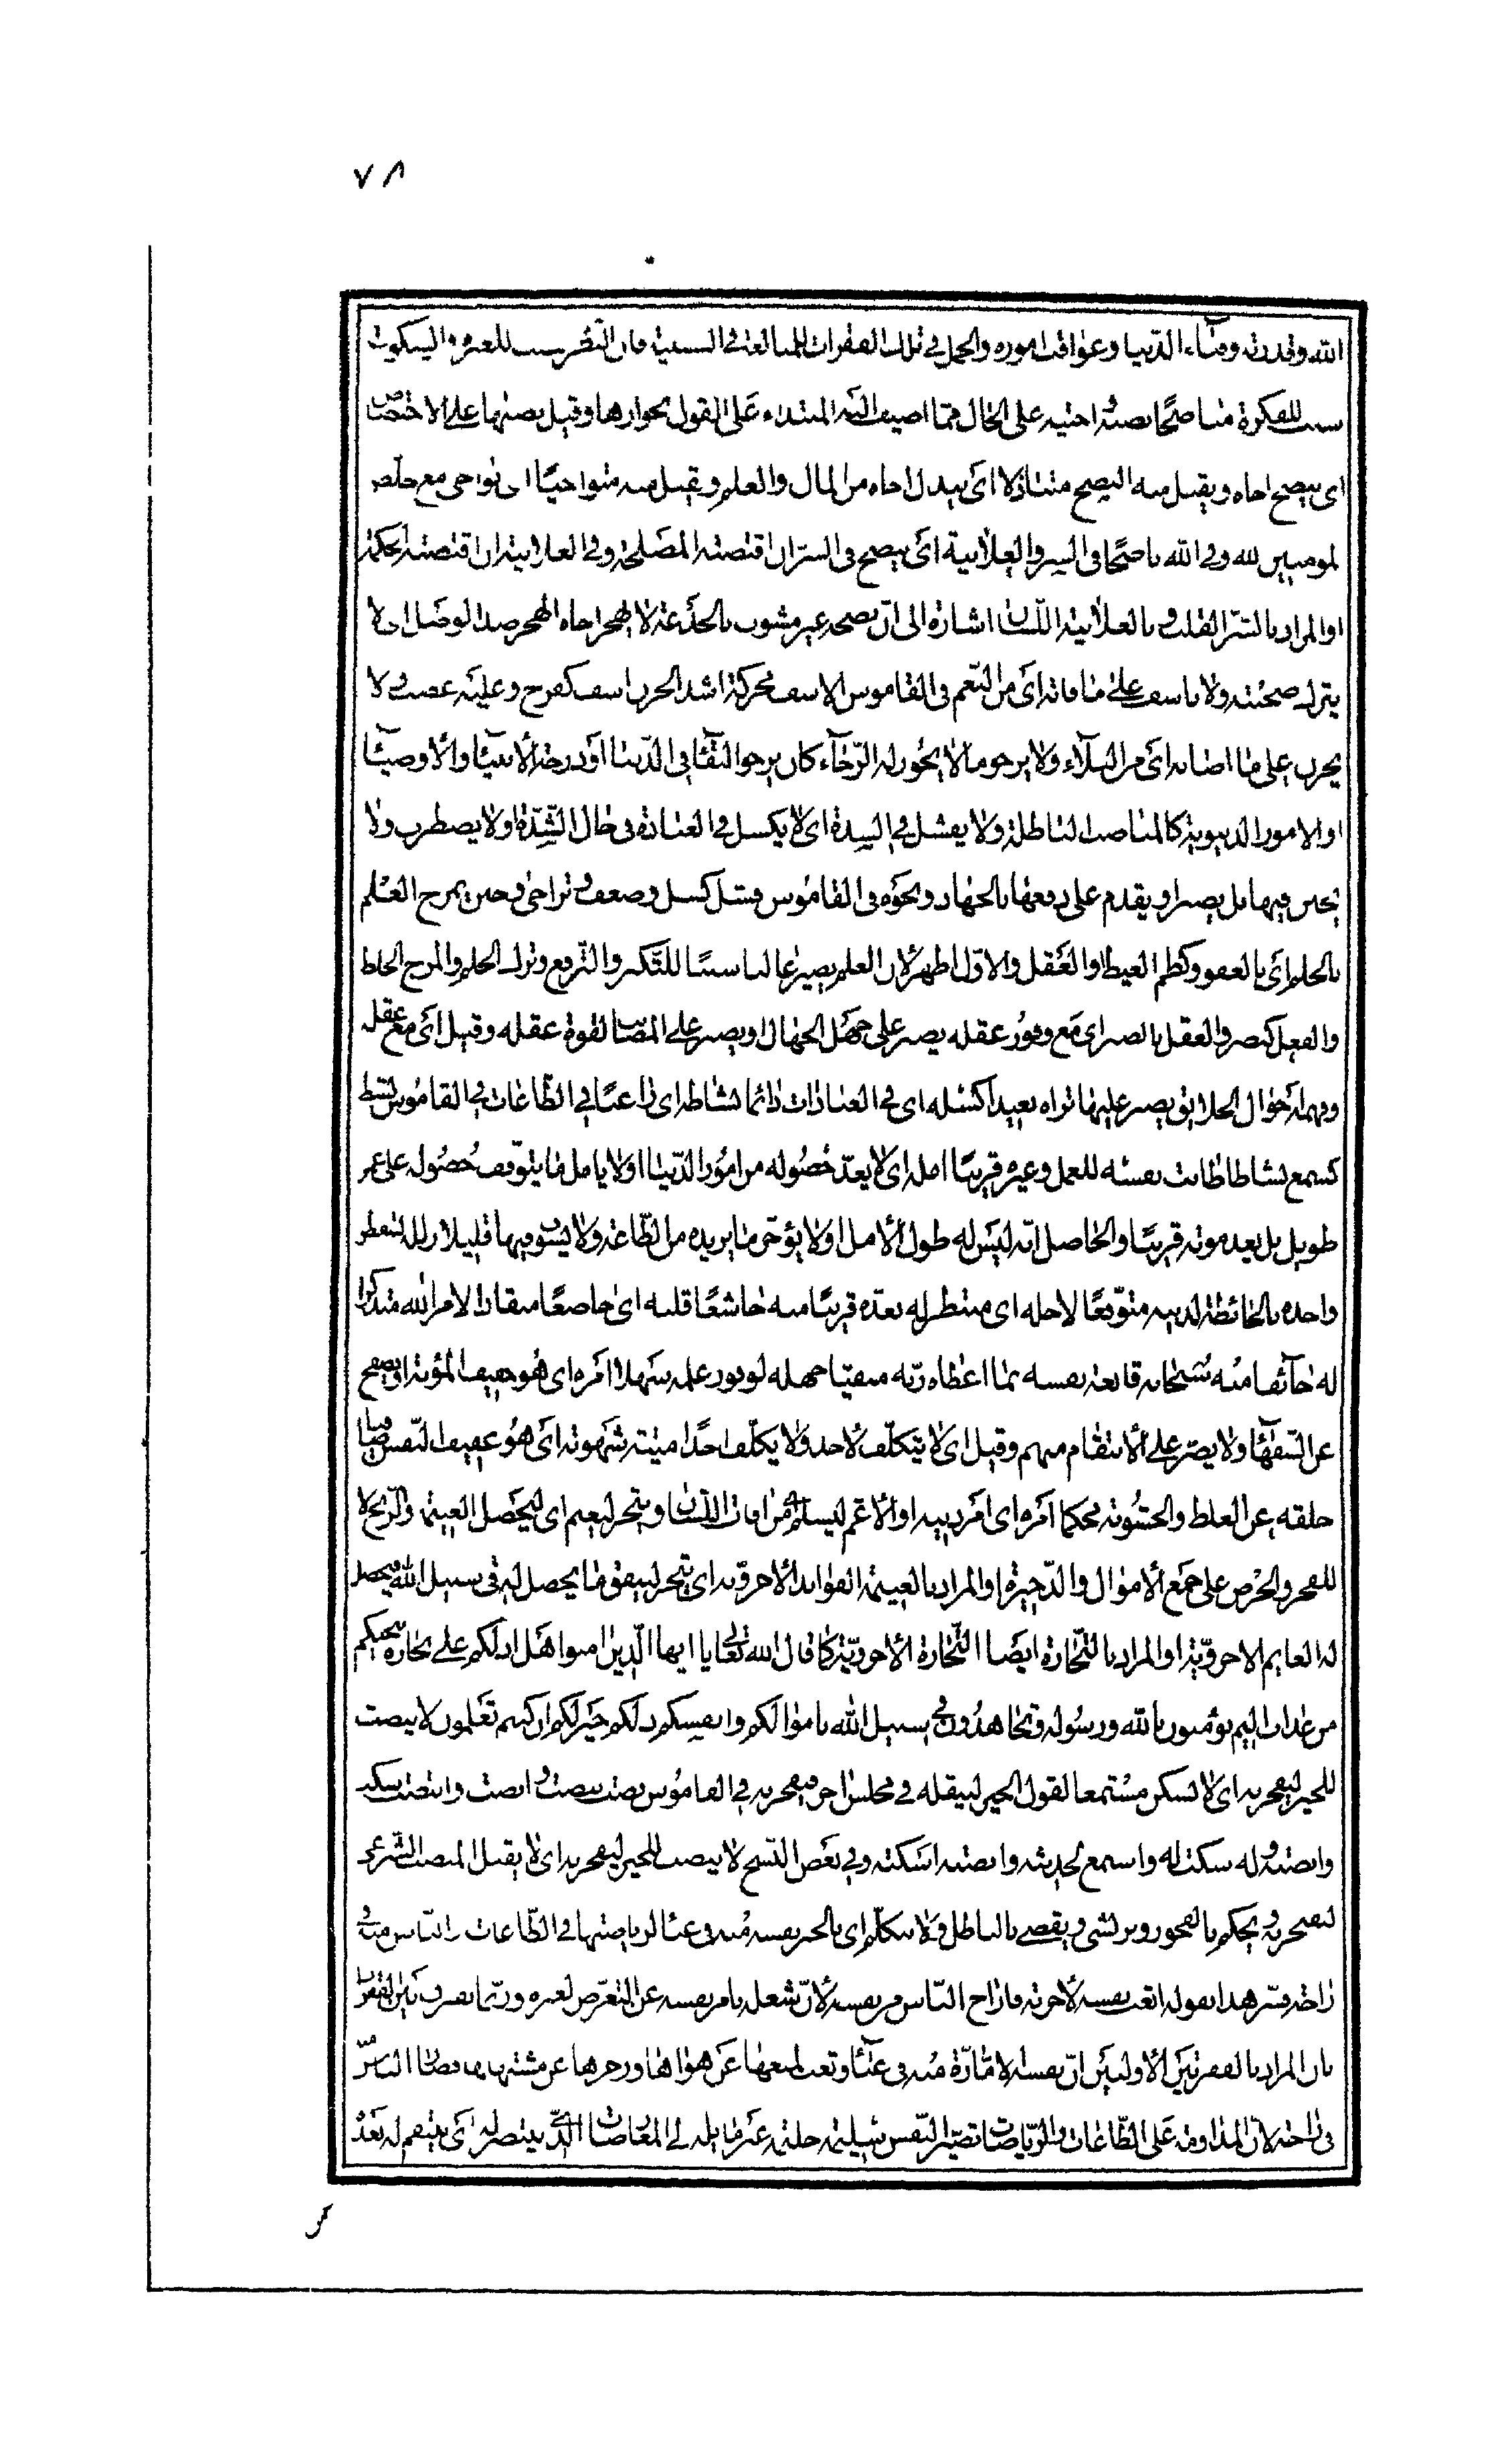 ٧٨
الله وقدرته وفناء الدنيا وعواقب اموره والحمل في تلك الفقرات للمبالغة في السببية فان التقرير سبب للعبرة والسكوت
سبب للفكرة مناصحًا نصبه واختيه على الحال مما اضيف اليه المبتداء على القول بجوازها وقيل نصبها على الاختصاص
اى ينصح اخاه ويقبل منه النصح متباذلا اى يبذل اخاه من المال والعلم ويقبل منه متواخيًا اى يواخى مع خلص
لمومنين لله وفى الله ناصحًا فى السر والعلانية اى ينصح فى السرّ ان اقتضته المصلحة وفى العلانية ان اقتضته الحكمة
او المراد بالسّر القلب وبالعلانية اللّسان اشارة الى انّ نصحه غير مشوب بالخدعة لا يهجر اخاه الهجر ضد الوصل اى لا
يترك صحبته ولا ياسف على ما فاته اى من النّعم فى القاموس الاسف محركة اشد الحزن اسف كفرح وعليه غضب ولا
يحزن على ما اصابه اى من البلاء ولا يرجو ما لا يجوز له الرّجآء كان يرجو البقآء فى الدّنيا او درجة الأنبيآء والأوصيآء
او الامور الدنيوية كالمناصب الباطلة ولا يفشل في الشدة اى لا يكسل في العبادة فى حال الشّدّة او لا يضطرب ولا
يجبن فيها بل يصبر او يقدم على دفعها بالجهاد ونحوه فى القاموس فشل كسل وضعف وتراخى وجبن يمزج العلم
بالحلم اى بالعفو وكظم الغيظ او العقل والاوّل اظهر لان العلم يصير غالبا سببًا للتّكبر والترفع وترك الحلم والمزج الخلط
والفعل كنصر والعقل بالصبر اى مع وفور عقله يصبر على جهل الجهال او يصبر على المصائب لقوة عقله وقيل اى مع عقله
وفهمه احوال الخلايق يصبر عليها تراه بعيدا كسله اى في العبادات دائما نشاطه اى راغبًا في الطّاعات في القاموس نشط
كسمع نشاطا طابت نفسه للعمل وغيره قريبًا امله اى لا يعدّ حصوله من امور الدّنيا او لا يامل ما يتوقف حصوله على عمر
طويل بل يعد موته قريبًا والحاصل انّه ليس له طول الأمل او لا يؤخر ما يريده من الطّاعة ولا يسوف فيها قليلا زلله لتيقظه
واخذه بالحائطة لدينه متوقعًا لاجله اى منتظر له يعده قريبًا منه خاشعًا قلبه اى خاضعًا منقادا لامر الله متذكرا
له خآئفا منه سبحانه قانعة نفسه بما اعطاه ربّه منفيا جهله لوفور علمه سهلا امره اى هو خفيف المؤنة او يصفح
عن السّفهآء ولا يصرّ على الأنتقام منهم وقيل اى لا يتكلّف لأحد ولا يكلّف احدًا ميتة شهوته اى هو عفيف النّفس صافيا
خلقه عن الغلظ والخشونة محكما امره اى امر دينه او الأعم ليسلم من افات اللّسان ويتجر ليغنم اى ليحصل الغنيمة والرّبح لا
للفخر والحرص على جمع الأموال والذّخيرة او المراد بالغنيمة الفوايد الأخرويّة اى يتجر لينفق ما يحصل له فى سبيل الله فيحصل
له الغنايم الاخرويّة او المراد بالتّجارة ايضا التّجارة الأخرويّة كما قال الله تعالى يا ايها الّذين امنوا هل ادلكم على تجارة تنجيكم
من عذاب اليم تؤمنون بالله ورسوله وتجاهدون في سبيل الله باموالكم وانفسكم ذلكم خير لكم ان كنتم تعلمون لا ينصت
للخير ليفخر به اى لا يسكن مستمعا لقول الخير لينقله في مجلس اخر فيفخر به في القاموس نصت ينصت وانصت وانتصت سكت
وانصته وله سكت له واستمع لحديثه وانصته اسكته وفي بعض النّسخ لا ينصب للخير ليفخر به اى لا يقبل المنصب الشّرعى
ليفجر به ويحكم بالفجور ويرتشى ويقضى بالباطل ولا يتكلّم اى بالخير نفسه منه فى عنآء لرياضتها فى الطّاعات والنّاس منه في
راحة فسّر هذا بقوله اتعب نفسه لأخرته فاراح النّاس من نفسه لأنّ شغله بامر نفسه عن التعرّض لغيره وربّما يفرق بين الفقرات
بان المراد بالفقرتين الأوليين انّ نفسه الامّارة منه فى عنآء وتعب لمنعها عن هواها وزجرها عن مشتهياتها والناس منه
فى راحة لانّ المداومة على الطّاعات والرّياضات تصيّر النّفس سليمة حليمة غير مايلة الى المعارضات الّذي ينتصر له اى ينتقم له بعد